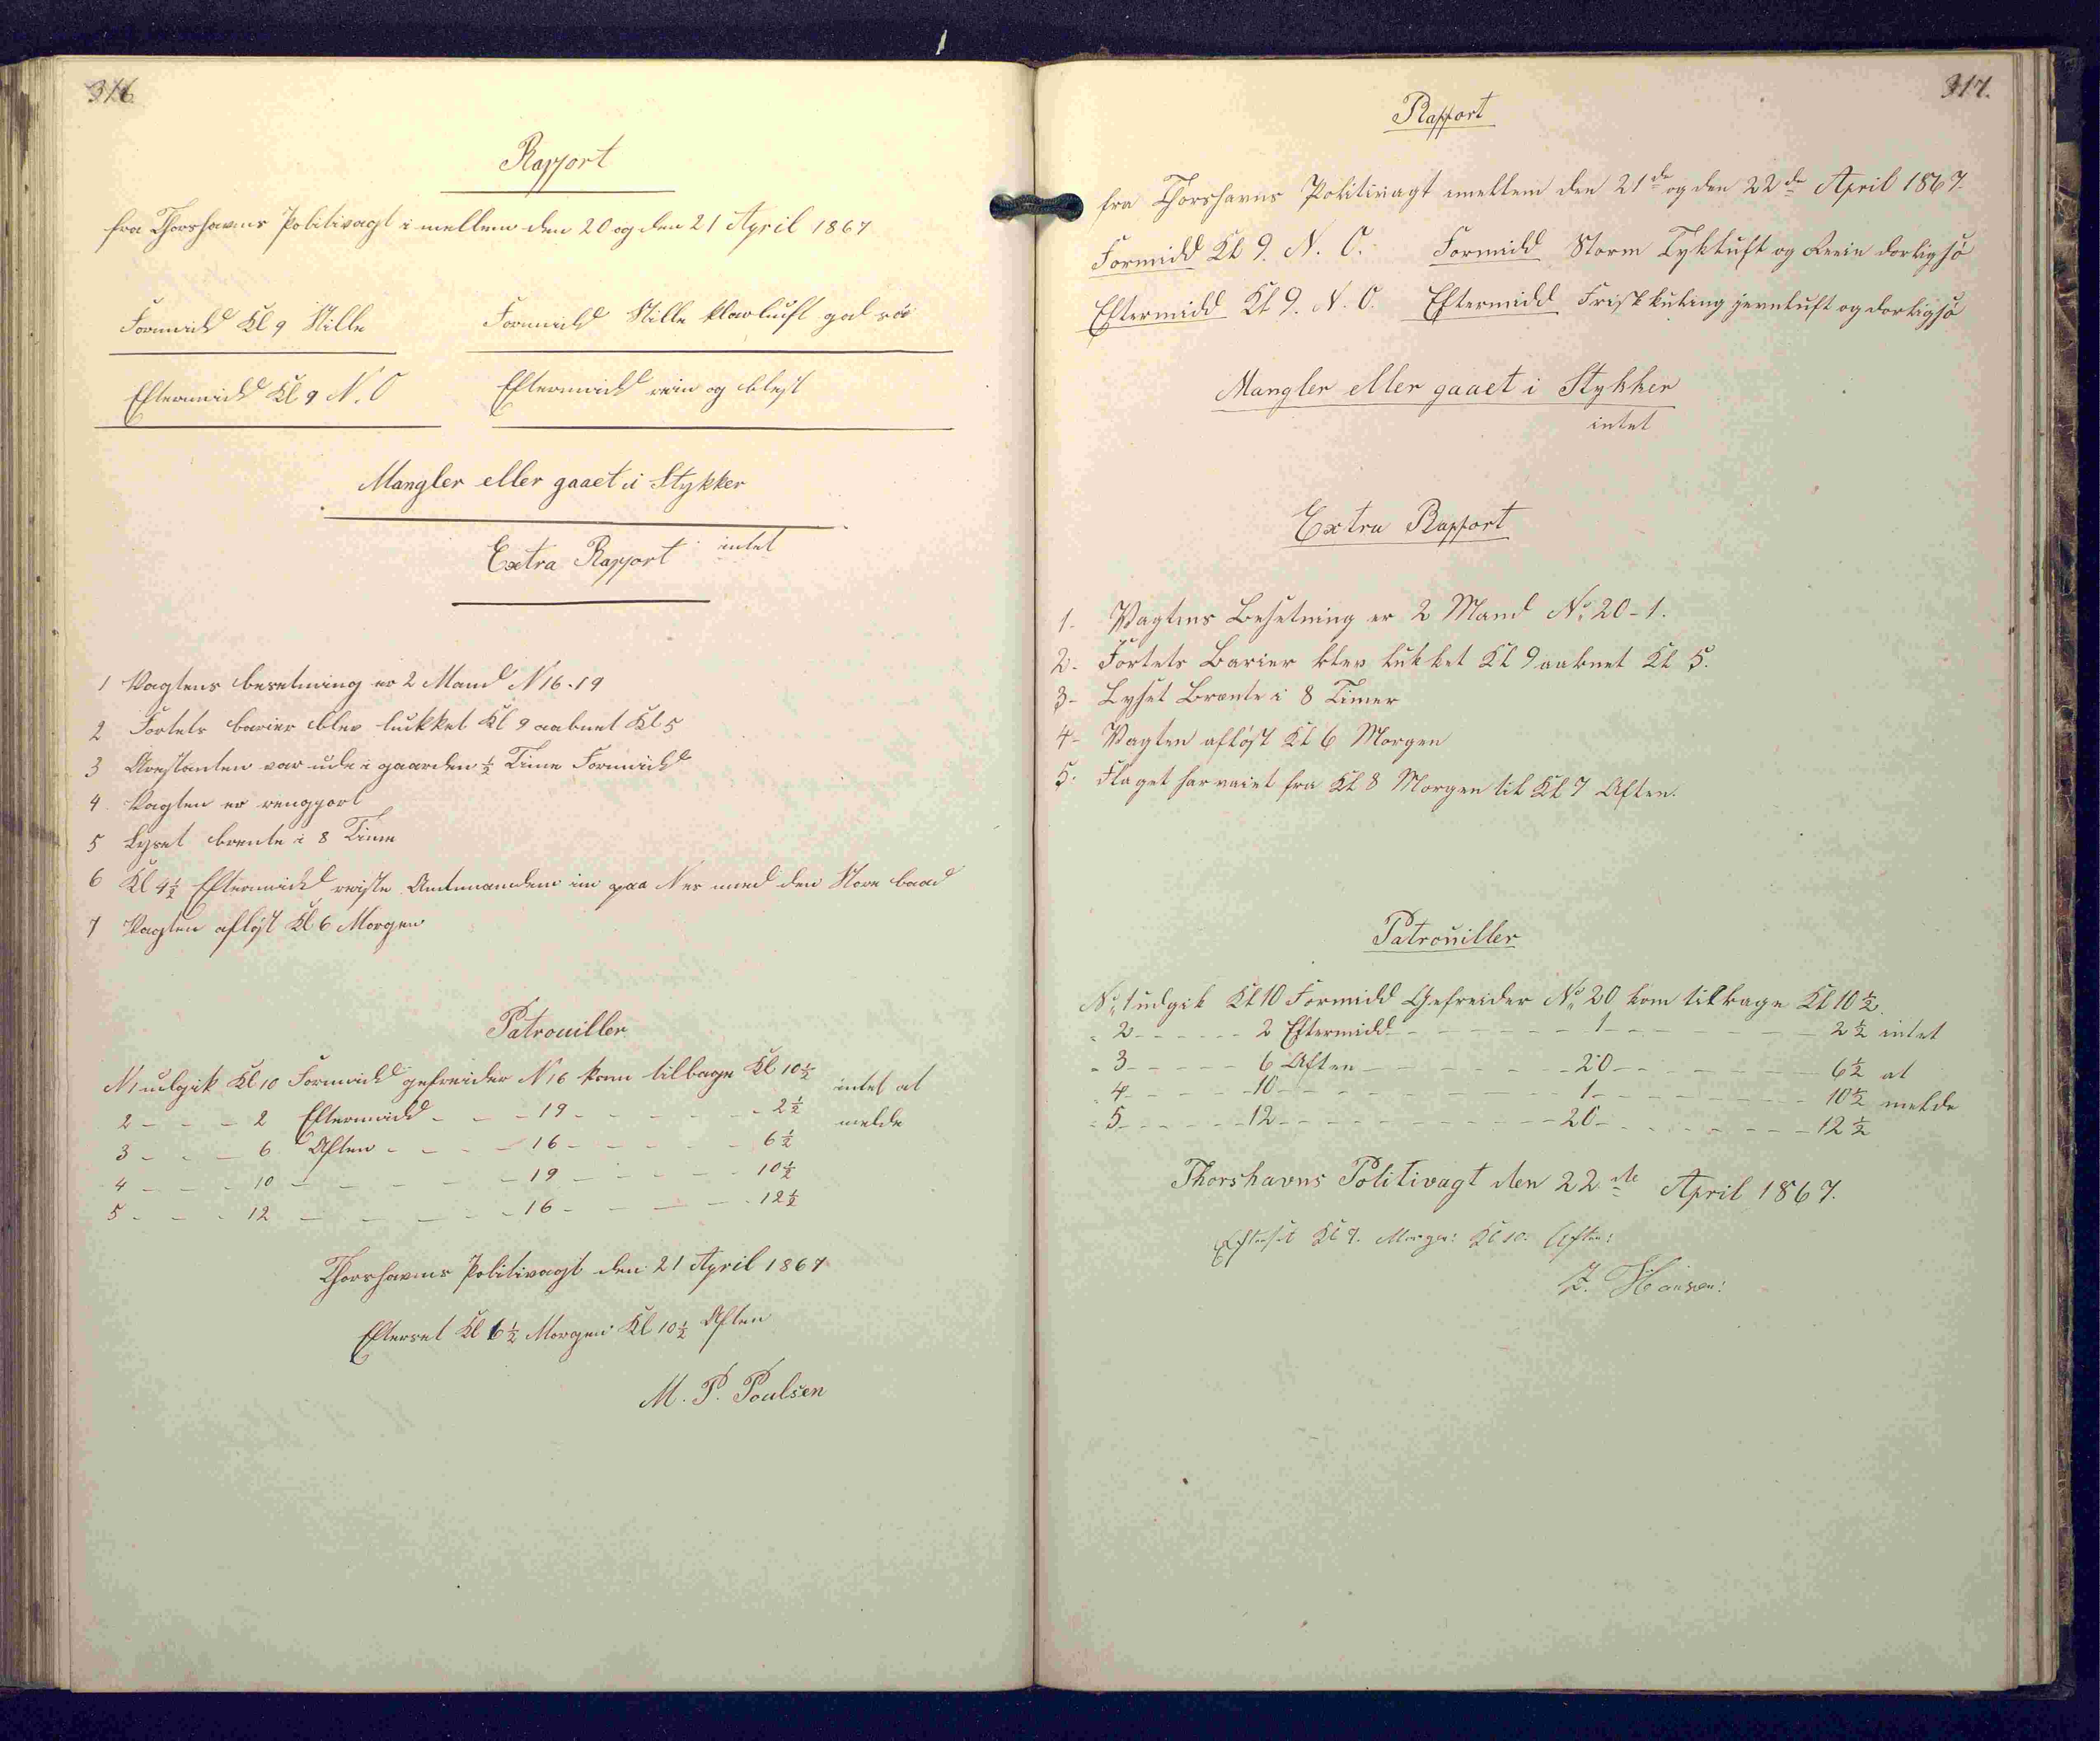 316
Rapport
fra Thorshavns Politivagt i mellem den 20 og den 21 April 1867
Formidd Kl 9 Stille Formidd Stille klarluft god söe
Eftermidd Kl 9 N. O Eftermidd rein og blest
Mangler eller gaaet i Stykker
intet
Extra Rapport
1 Vagtens besetning er 2 Mand N 16-19
2 Fortets barier blev lukket Kl 9 aabnet Kl 5
3 Arestanten var ude i gaarden ½ Time Formidd
4 Vagten er rengjort
5 Lyset brente i 8 Time
6 Kl 4½ Eftermidd reiste Amtmanden in paa Nes med den Store baad
7 Vagten aflöst Kl 6 Morgen
Patrouiller
N 1 udgik Kl 10 Formidd gefreider N 16 kom tilbage Kl 10½ intet at
2 - - - 2 Eftermidd - - - 19 - - - - - - 2½ melde
3 - - - 6 Aften - - - - 16 - - - - - 6½
4 - - - 10 - - - - - - 19 - - - - - 10½
5 - - - 12 - - - - - - 16 - - - - - 12½
Thorshavns Politivagt den 21 April 1867
Efterset Kl 6½ Morgen Kl 10½ Aften
M. P. Poulsen
317.
Rapport
fra Thorshavns Politivagt imellem den 21de og den 22de April 1867.
Formidd Kl 9. N. O. Formidd Storm Tykluft og Rein dorligsö
Eftermidd Kl 9. N. O. Eftermidd Friskkuling jevnluft og dorligsö
Mangler eller gaaet i Stykker
intet
Extra Rapport
1- Vagtens Besetning er 2 Mand No 20-1.
2- Fortets Barier blev lukket Kl 9 aabnet Kl 5.
3- Lyset Brænte i 8 Timer
4- Vagten aflöst Kl 6 Morgen
5- Flaget har vaiet fra Kl 8 Morgen til Kl 7 Aften.
Patrouiller
No 1 udgik Kl 10 Formidd Gefreider No 20 kom tilbage Kl 10½.
" 2 - - - - - - 2 Eftermidd - - - - - - 1 - - - - - - 2½ intet
" 3 - - - - - 6 Aften - - - - - - - 20 - - - - - - 6½ at
" 4 - - - - - 10 - - - - - - - - 1 - - - - - - - 10½ melde
" 5 - - - - - 12 - - - - - - - - 20 - - - - - - - 12½
Thorshavns Politivagt den 22de April 1867.
Efterset Kl 7. Morgen: Kl 10. Aften:
Hansen: